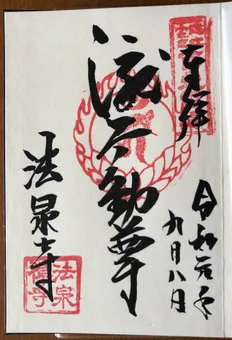 奉拝
令和元年
九月八日
波不動尊
法泉寺
法泉
禅寺